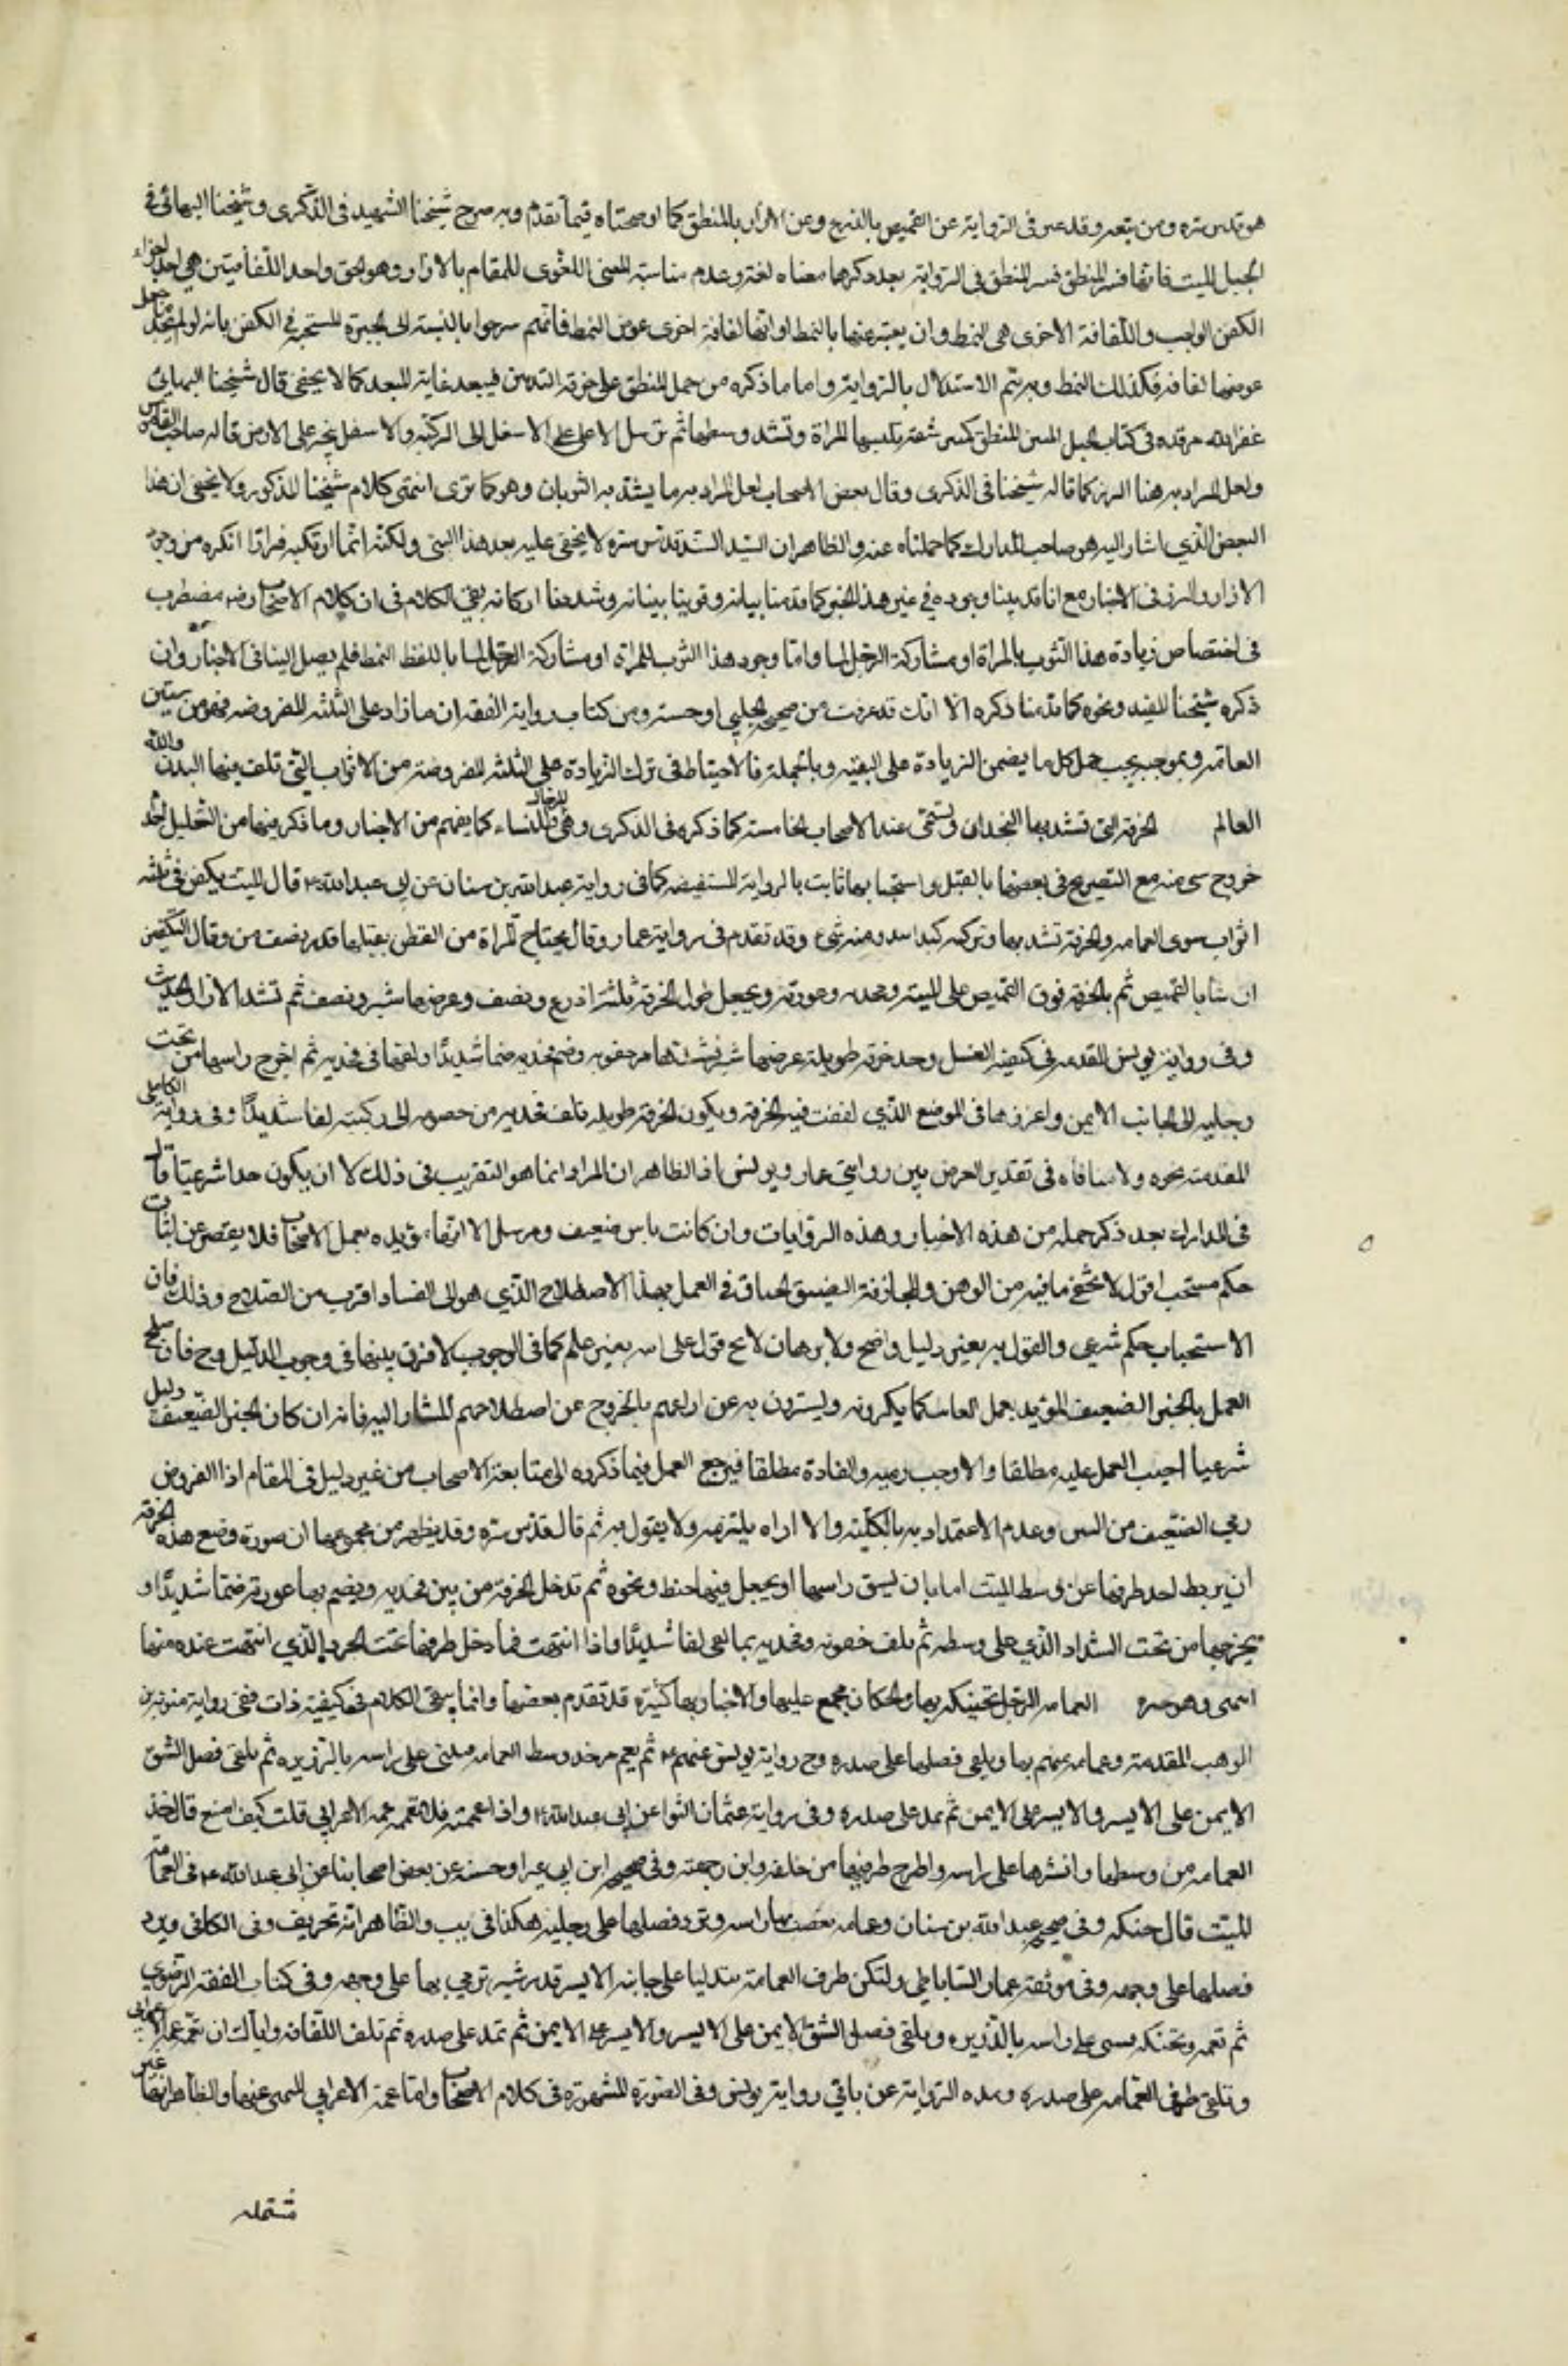 هو قدس سره ومن تبعه وقد عبر في الرواية عن القميص بالدرع وعن الازار بالمنطق كما اوضحناه فيما تقدم وبه صرح شيخنا الشهيد في الذكرى وشيخنا البهائي في
الحبل المتين فانهما فسرا المنطق في الرواية بعد ذكرهما معناه لغة وعدم مناسبة المعنى اللغوي للمقام بالازار وهو الحق واحد اللفافتين هي احد اجزاء
الكفن الواجب واللفافة الاخرى هي النمط وان يعبر عنها بالنمط او انها لفافة اخرى عوض النمط فانهم صرحوا بالنسبة الى الحبرة المستحبة في الكفن بانه لو لم تجد جعل
عوضها لفافة فكذلك النمط وبه يتم الاستدلال بالرواية واما ما ذكره من حمل المنطق على خرقة الثديين فبعد غاية البعد كما لا يخفى قال شيخنا البهائي
عفر الله مرقده في كتاب الحبل المتين المنطق كمنبر شقة تلبسها المراة وتشد وسطها ثم ترسل الاعلى على الاسفل الى الركبة والاسفل ينجر على الارض قاله صاحب القاموس
ولعل المراد به هنا المئزر كما قاله شيخنا في الذكرى وقال بعض الاصحاب لعل المراد به ما يشد به الثديان وهو كما ترى انتهى كلام شيخنا المذكور ولا يخفى ان هذا
البعض الذي اشار اليه هو صاحب المدارك كما حملناه عنه والظاهر ان السيد السند قدس سره لا يخفى عليه بعد هذا المعنى ولكنه انما ارتكبه فرارا مما انكره من وجود
الازار والمئزر في الاخبار مع انا قد بينا وجوده في غير هذا الخبر كما قدمنا بيانه وقوينا بنيانه وشددنا اركانه بقي الكلام في ان كلام الاصحاب رض مضطرب
في اختصاص زيادة هذا الثوب بالمراة او مشاركة الرجل لها واما وجود هذا الثوب للمراة او مشاركة الرجل لها بلفظ النمط فلم يصل الينا في الاخبار وان
ذكره شيخنا المفيد ونحوه كما قدمنا ذكره الا انك قد عرفت من صحيح الحلبي او حسنته ومن كتاب رواية الفقه ان ما زاد على الثلثة المفروضة فهو من سنن
العامة وبموجبه يجب حمل كل ما يضمن الزيادة على التقية وبالجملة فالاحتياط في ترك الزيادة على الثلثة المفروضة من الاثواب التي تلف فيها البدن والله
العالم الخرقة التي تشد بها الفخذان وتسمى عند الاصحاب الخامسة كما ذكره في الذكرى وهي للرجال والنساء كما يفهم من الاخبار وما ذكر فيها من التعليل لئلا
خروج شئ منه مع التصريح في بعضها بالقبل واستحبابها ثابت بالرواية المستفيضة كما في رواية عبد الله بن سنان عن ابي عبد الله ع قال الميت يكفن في ثلثة
اثواب سوى العمامة والخرقة تشد بها وركيه كيلا يبدو منه شئ وقد تقدم في رواية عمار وقال يحتاج المراة من القطن لقبلها قدر نصف من وقال التكفين
ان تبدا بالقميص ثم بالخرقة فوق القميص على اليتيه وفخذيه وعورته ويجعل طول الخرقة ثلثة اذرع ونصف وعرضها شبر ونصف ثم تشد الازار الحديث
وفي رواية يونس المقدمة في كيفية الغسل وخذ خرقة طويلة عرضها شبر فشدها من حقويه وضم فخذيه ضما شديدا ولفها في فخذيه ثم اخرج راسها من تحت
رجليه الى الجانب الايمن واغرزها في الموضع الذي لففت فيه الخرقة ويكون الخرقة طويلة تلف فخذيه من حقويه الى ركبتيه لفا شديدا وفي رواية الكاهلي
المقدمة نحوه ولا منافاة في تقدير العرض بين روايتي عمار ويونس اذ الظاهر ان المراد انما هو التقريب في ذلك لا ان يكون حدا شرعيا قال
في المدارك بعد ذكر جملة من هذه الاخبار وهذه الروايات وان كانت بين ضعيف ومرسل الا انها مؤيدة بعمل الاصحاب فلا يقصر عن اثبات
حكم مستحب اقول لا يخفى ما فيه من الوهن والمجازفة الضيق الخناق في العمل بهذا الاصطلاح الذي هو الى الفساد اقرب من الصلاح وذلك فان
الاستحباب حكم شرعي والقول به بغير دليل واضح ولا برهان لائح قول على الله بغير علم كما في الوجوب لا فرق بينهما في وجوب الدليل وح فان صلح
العمل بالخبر الضعيف المؤيد بعمل العامة كما يكررونه ويستترون به عن ايرادهم بالخروج عن اصطلاحهم المشار اليه فانه ان كان الخبر الضعيف دليل
شرعيا اجيب العمل عليه مطلقا والا وجب رميه والغاؤه مطلقا فيرجع العمل فيما ذكروه الى متابعة الاصحاب من غير دليل في المقام اذ المفروض
رمي الضعيف من البين وعدم الاعتداد به بالكلية والا اراه يلتزمه ولا يقول به ثم قال قدس سره وقد يظهر من مجموعها ان صورة وضع هذه الخرقة
ان يربط احد طرفيها عن وسط الميت اما بان يشق راسها او يجعل فيها خيط ونحوه ثم تدخل الخرقة من بين فخذيه ويضم بها عورته ضما شديدا و
يخرجها من تحت الشداد الذي على وسطه ثم يلف حقويه وفخذيه بما بقي لفا شديدا واذا انتهت فما دخل طرفها تحت الجزء الذي انتهت عنده منها
انتهى وهو حسن العمامة للرجل وتحنيكه بها والحكمان مجمع عليها والاخبار بها كثيرة قد تقدم بعضها وانما يبقى الكلام في كيفية ذلك ففي رواية معوية بن
الوهب المقدمة وعمامة يعمم بها ويلقى فضلها على صدره وح رواية يونس عنهم ع ثم يعمم يؤخذ وسط العمامة فيثنى على راسه بالتدوير ثم يلقى فضل الشق
الايمن على الايسر والايسر على الايمن ثم يمد على صدره وفي رواية عثمان النوا عن ابي عبد الله ع واذا عممته فلا تعممه عمة الاعرابي قلت كيف اصنع قال خذ
العمامة من وسطها وانشرها على راسه واطرح طرفيها من خلفه وابن رجعته وفي صحيح ابن ابي عمير او حسنه عن بعض اصحابنا عن ابي عبد الله ع في العمامة
للميت قال حنكه وفي صحيح عبد الله بن سنان وعمامة يعصب بها راسه ويرد فضلها على رجليه هكذا في يب والظاهر انه تحريف وفي الكافي ويرد
فضلها على وجهه وفي موثقة عمار الساباطي وليكن طرف العمامة متدليا على جانبه الايسر قدر شبر ترمي بها على وجهه وفي كتاب الفقه الرضوي
ثم تعممه وتحنكه فيثنى على راسه بالتدوير ويلقى فضل الشق الايمن على الايسر والايسر على الايمن ثم تمد على صدره ثم تلف اللفافة واياك ان تعممه عمة الاعرابي
وتلقى طرفي العمامة على صدره وهذه الرواية عن باقي رواية يونس وفي الصورة المشهورة في كلام الاصحاب واما عمة الاعرابي المنهى عنها والظاهر انها غير
مشتملة